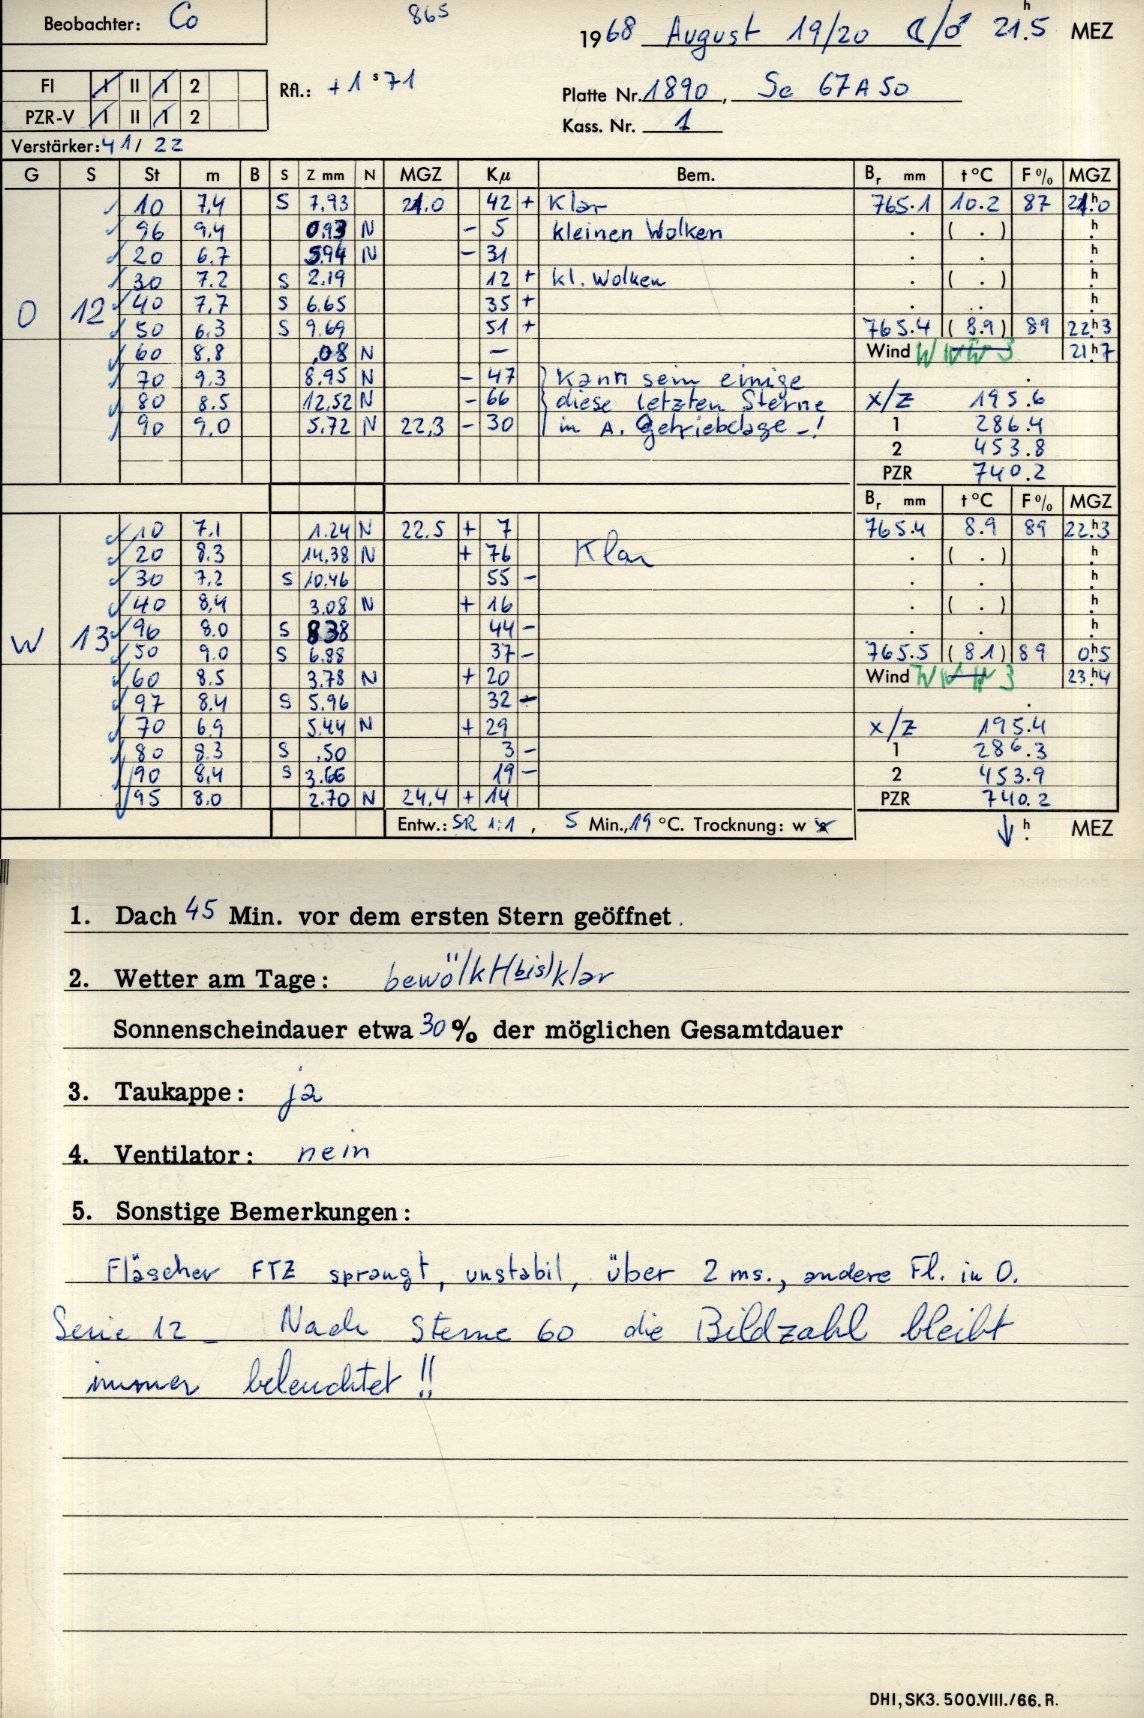 Beobachter: Co
865
1968 August 19/20 ☾/♂ 21.5 h MEZ
FI I II 1 2
PZR-V I II 1 2
Rfl.: +1 s 71
Platte Nr. 1890, Sc 67A50
Kass. Nr. 1
Verstärker: 41/22
G S St m B S Z mm N MGZ Kμ Bem. Br mm t°C F% MGZ
10 7,4 S 7.93 21.0 42 + Klar 765.1 10.2 87 21h0
96 9.4 0.93 N - 5 kleinen Wolken . ( . ) h
20 6.7 5.94 N - 31 . . h
30 7.2 S 2.19 12 + kl. Wolken . ( . ) h
O 12 40 7,7 S 6.65 35 + . . h
50 6.3 S 9.69 51 + 765.4 (8.9) 89 22h3
60 8.8 .08 N - Wind W 3 21h7
70 9.3 8.95 N - 47 Kann sein einige
80 8.5 12.52 N - 66 diese letzten Sterne x/z 195.6
90 9.0 5.72 N 22,3 - 30 in A. Getriebelage -! 1 286.4
2 453.8
PZR 740.2
Br mm t°C F% MGZ
10 7.1 1.24 N 22.5 + 7 765.4 8.9 89 22h3
20 8.3 14,38 N + 76 Klar . ( . ) h
30 7,2 S 10.46 55 - . . h
40 8,4 3.08 N + 16 . ( . ) h
W 13 96 8.0 S 8.38 44 - . . h
50 9.0 S 6.88 37 - 765.5 (8.1) 89 0h5
60 8.5 3.78 N + 20 Wind W 3 23h4
97 8.4 S 5.96 32 -
70 6.9 5.44 N + 29 x/z 195.4
80 8.3 S .50 3 - 1 286.3
90 8,4 S 3.66 19 - 2 453.9
95 8.0 2.70 N 24,4 + 14 PZR 740.2
Entw.: SR 1:1, 5 Min., 19 °C. Trocknung: w ↓ h MEZ
1. Dach 45 Min. vor dem ersten Stern geöffnet.
2. Wetter am Tage: bewölkt (bis) klar
Sonnenscheindauer etwa 30 % der möglichen Gesamtdauer
3. Taukappe: ja
4. Ventilator: nein
5. Sonstige Bemerkungen:
Fläscher FTZ sprangt, unstabil, über 2 ms., andere Fl. in O.
Serie 12 - Nach Sterne 60 die Bildzahl bleibt
immer beleuchtet !!
DHI, SK3. 500.VIII./66. R.